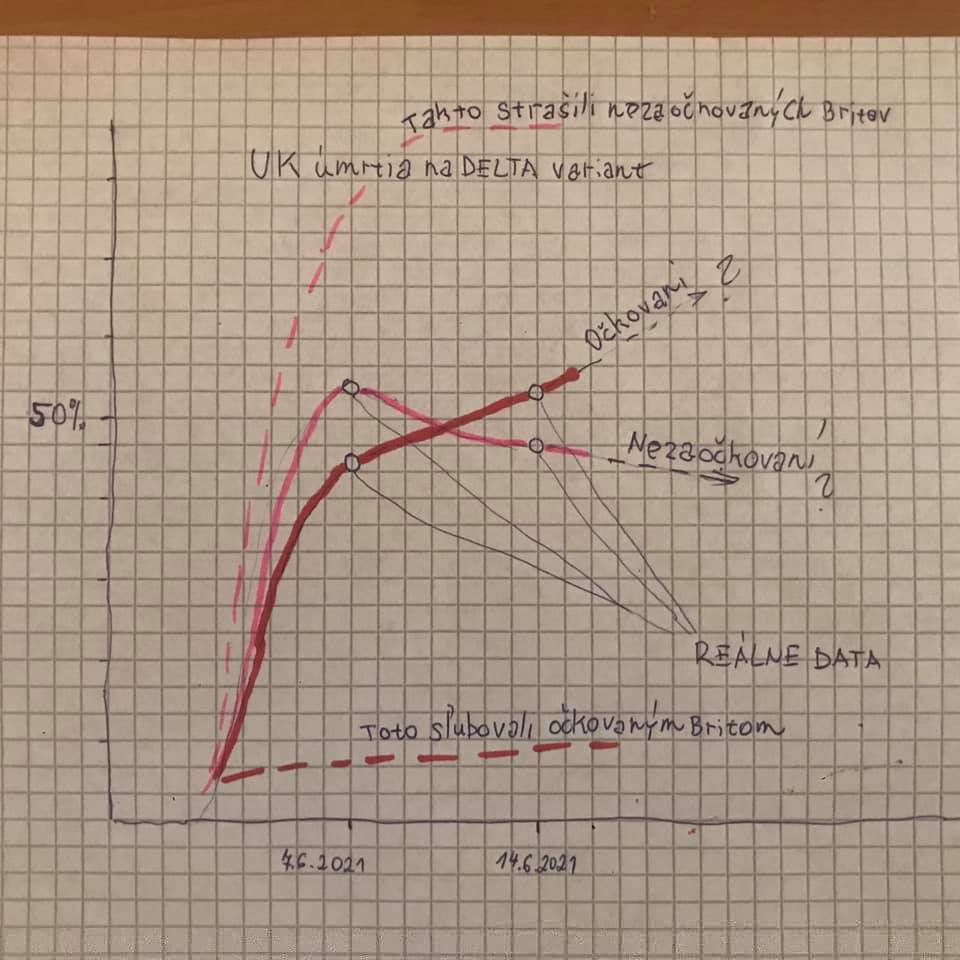 Takto strašili nezaočkovaných Britov
UK úmrtia na DELTA variant
Očkovaní ?
50%
Nezaočkovaní
?
REÁLNE DATA
Toto sľubovali očkovaným Britom
7.6.2021 14.6.2021